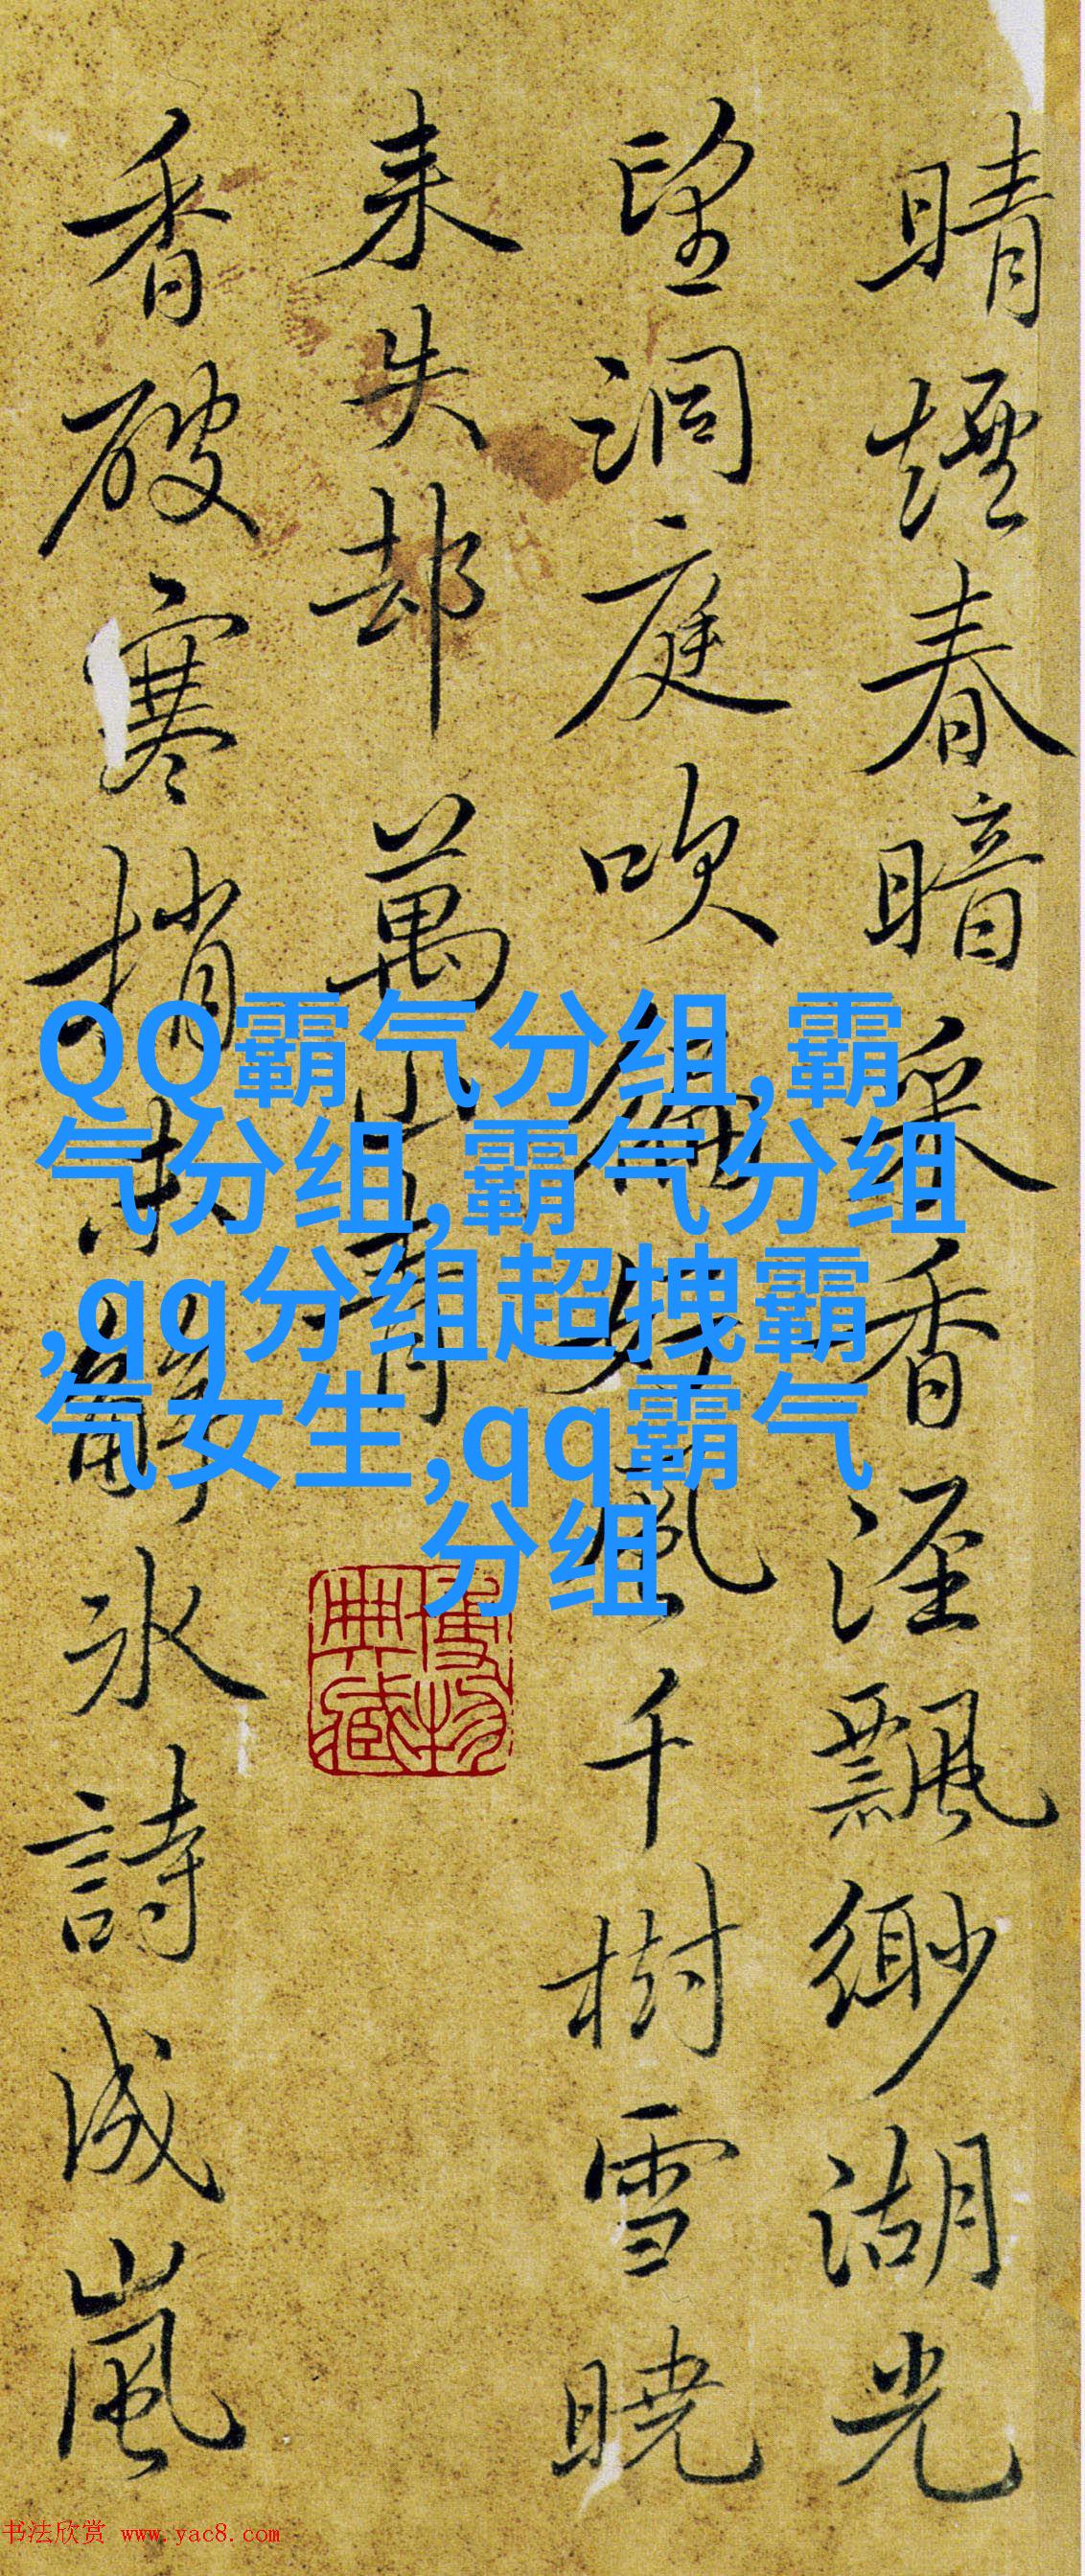 晴煙春暗采香涇飄緲湖光
望洞庭吹徧好風千樹雪曉
来失却萬山青
香破寒梢未解氷詩成嵐
QQ霸气分组,霸
气分组,霸气分组
,qq分组超拽霸
气女生,qq霸气
分组
博物
典藏
书法欣赏 www.yac8.com